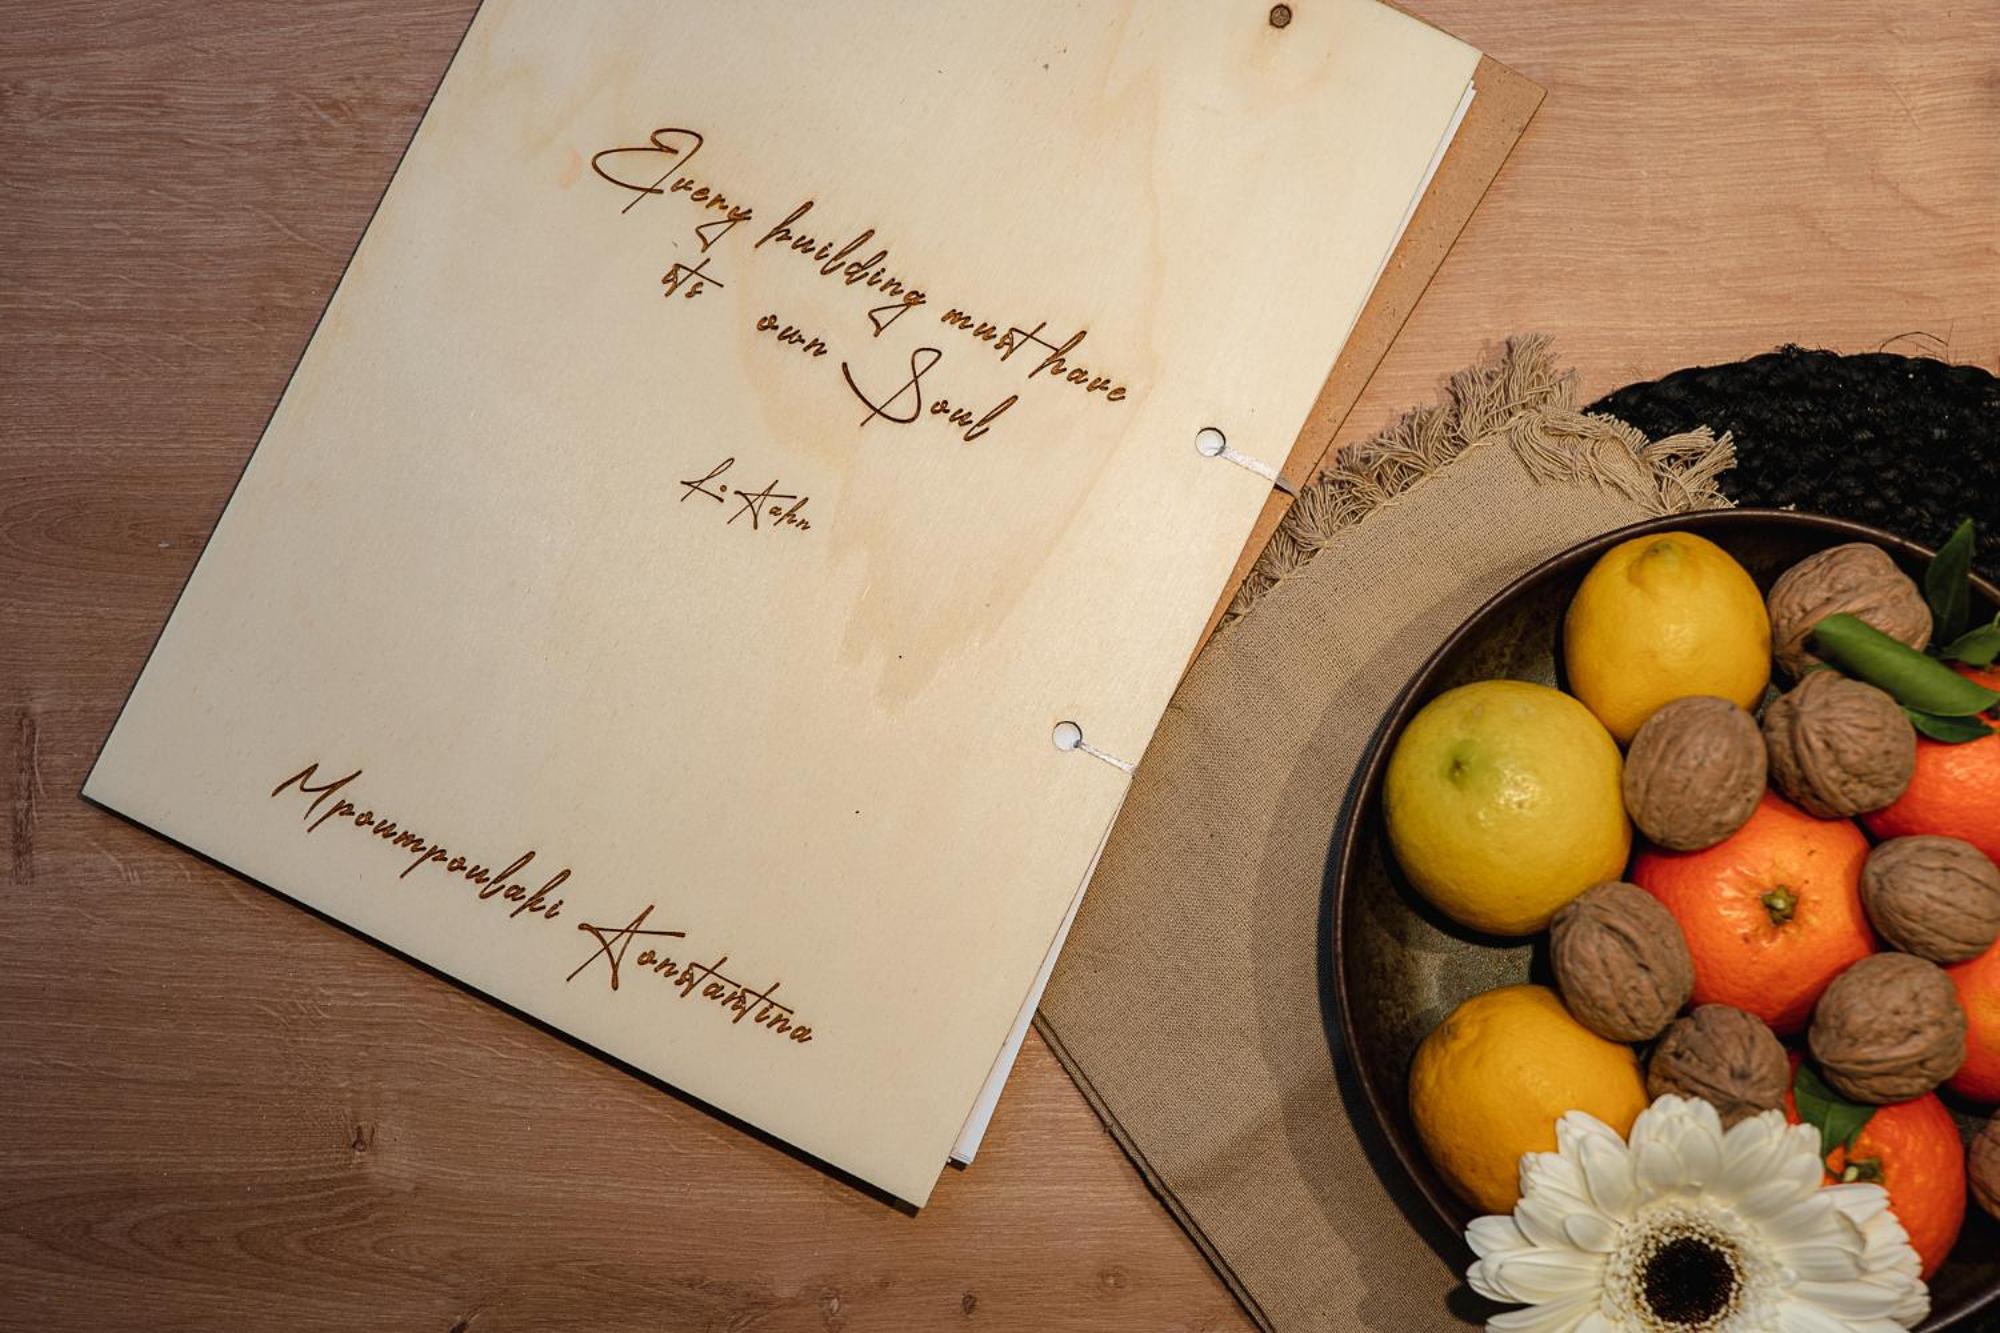 Every building must have
its own Soul
L. Kahn
Mpoumpoulaki Konstantina